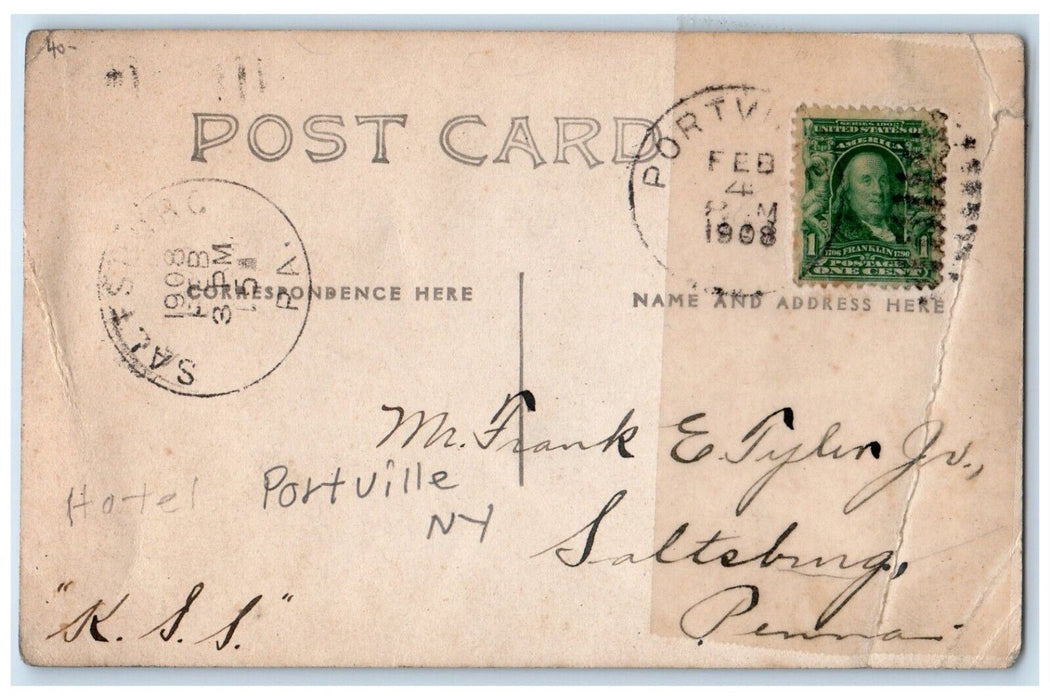 40-
POST CARD
PORTVI
FEB
4
M
1908
SERIES 1902
UNITED STATES OF
AMERICA
1 1706 FRANKLIN 1790 1
POSTAGE
ONE CENT
SALTSBURG
1908
FEB
3 PM
5
PA.
CORRESPONDENCE HERE
NAME AND ADDRESS HERE
Mr. Frank E. Tyler Jr.,
Hotel Portville
NY
Saltsburg,
Penna.
"K. S. S."